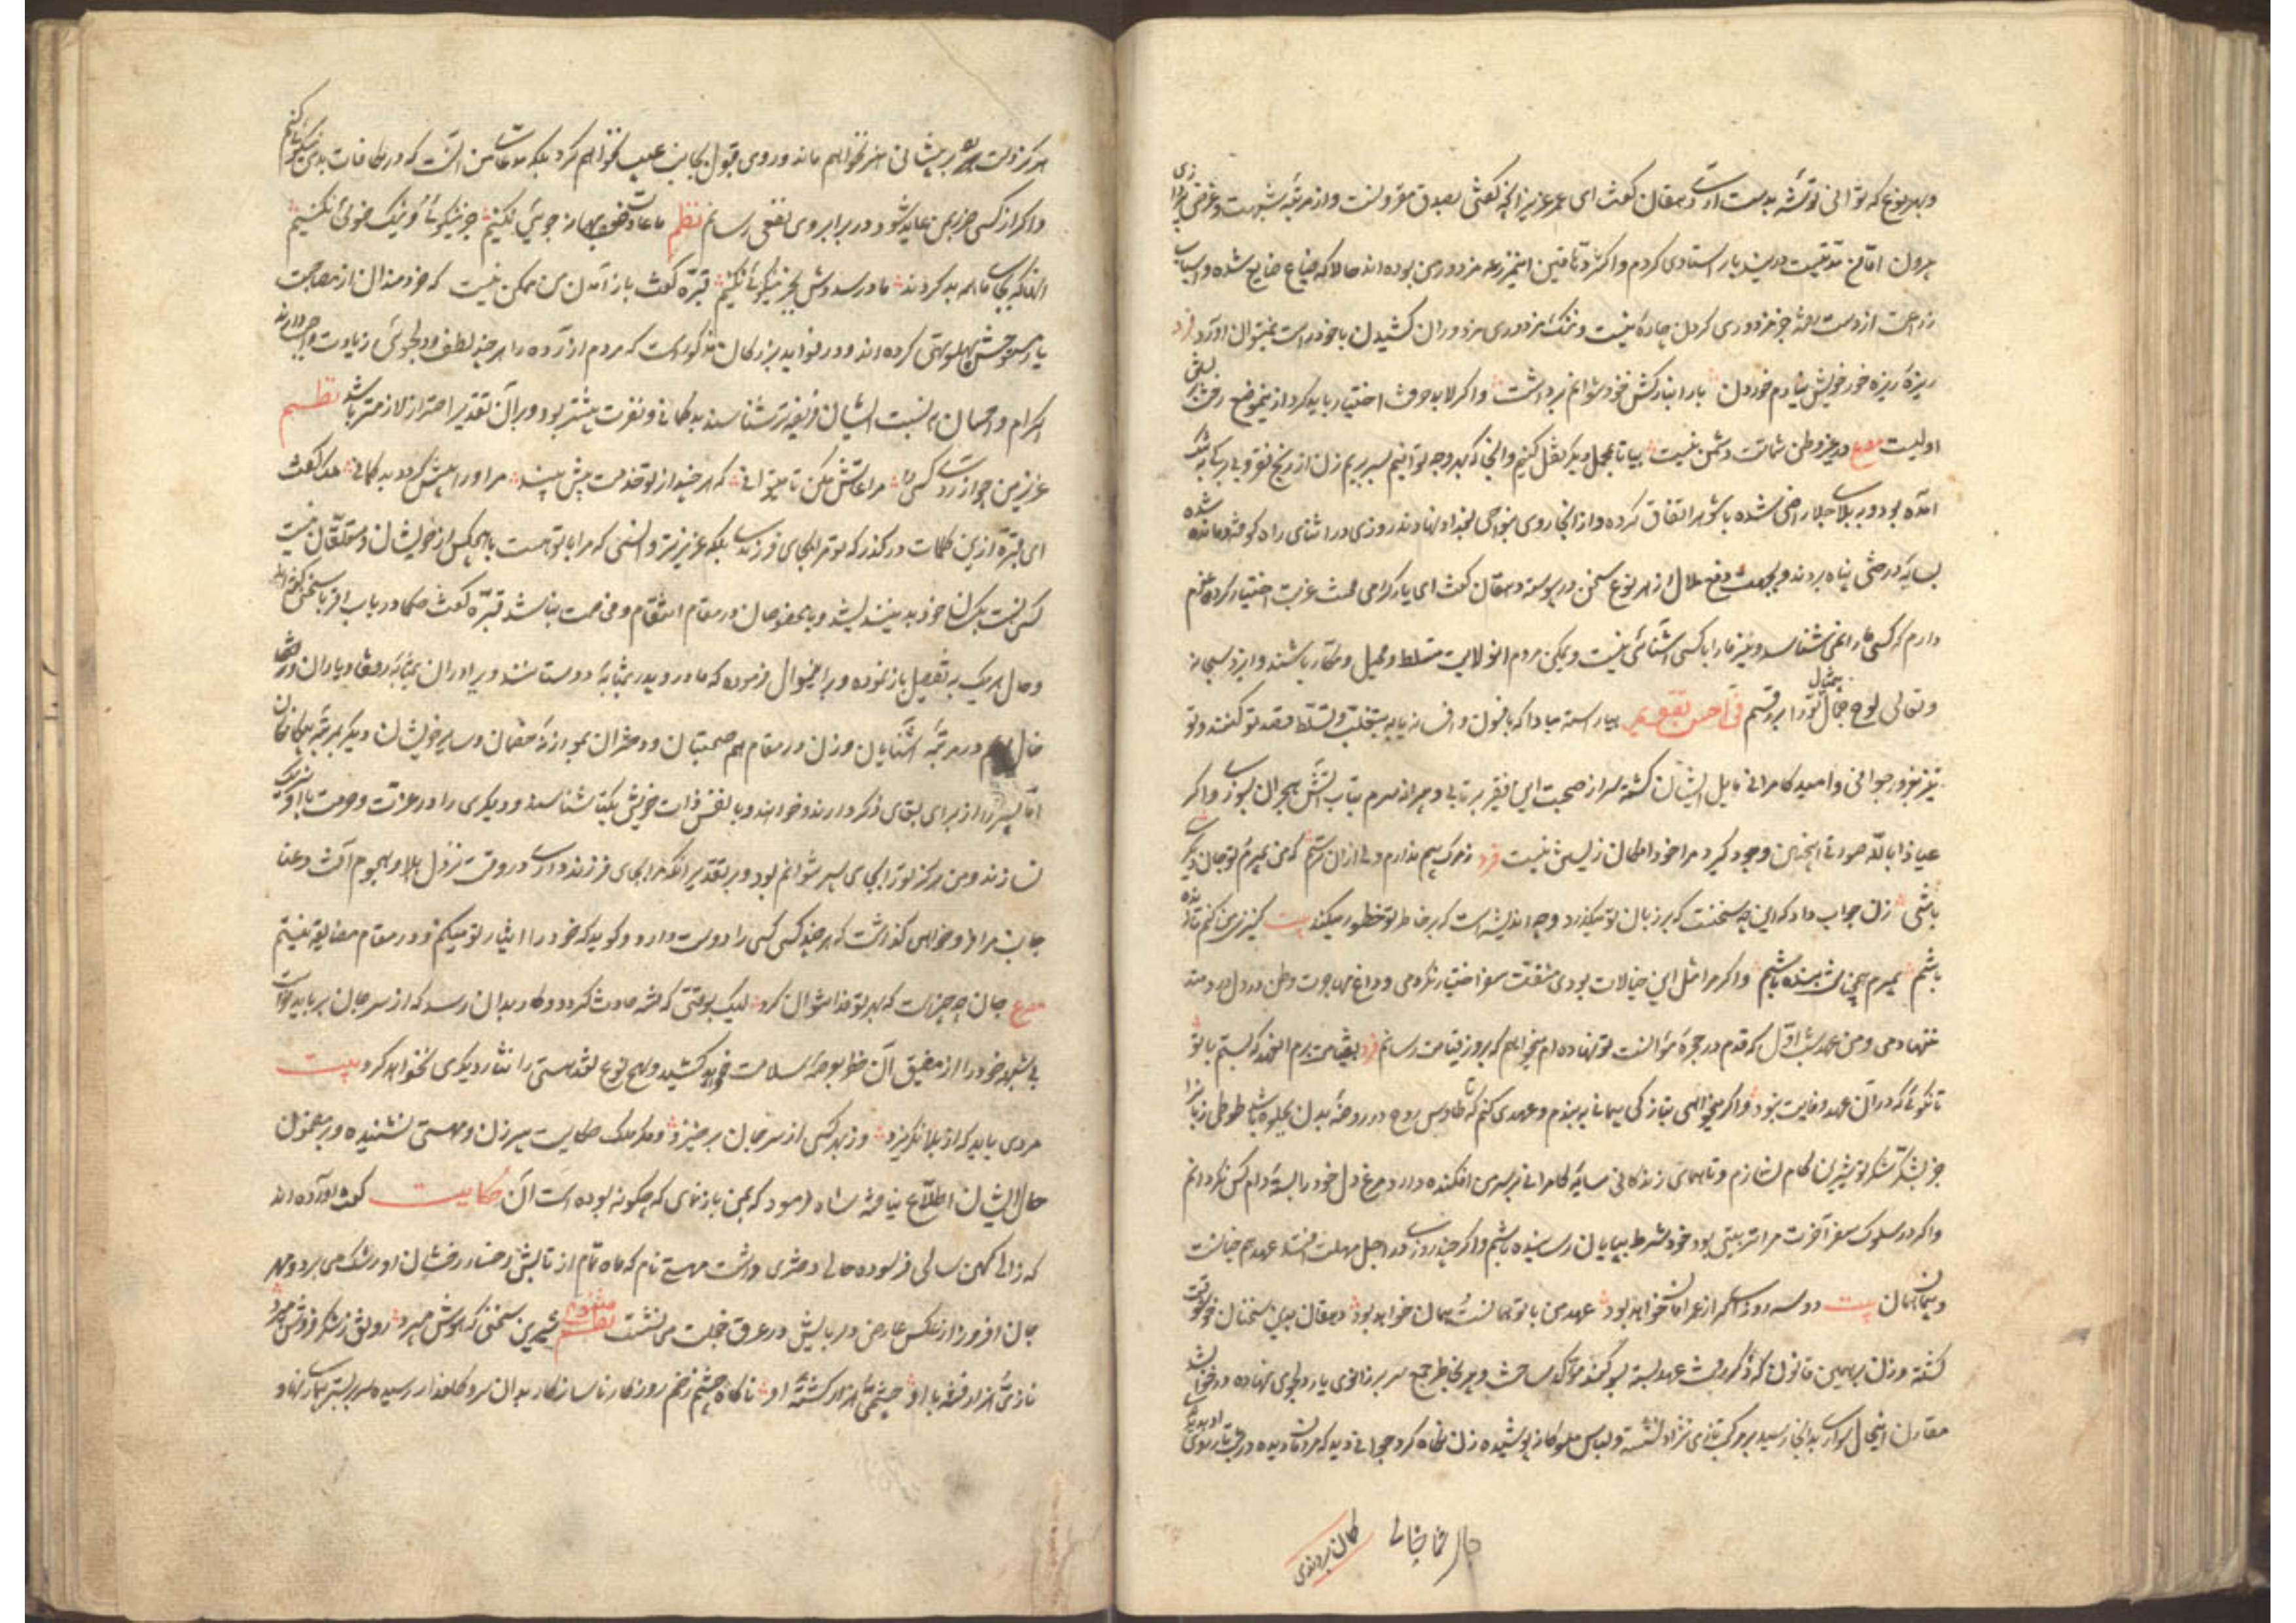 و بهر نوع که توانی توشه بدست آری دهقان گفت ای عمر عزیز آنچه گفتی بصدق مقرونست و از مرتبهٔ شبهت و غرض
بیرون اما من مدتیست درین دیار استادی کردم و اکثر دهاقین این مزرعه مزدور من بوده اند حالا که ضیاع ضایع شده و اسباب
زراعت از دست رفته جز مزدوری کردن چارهٔ نیست و ننگ مزدوری مزدوران کشیدن با خود راست نمیتوان آورد فرد
ریزه ریزه خور خویش نیارم خوردن بار انبارکش خود نتوانم برداشت و اگر لابد حرفت اختیار باید کرد ازین موضع رخت
اولیست مصرع در غیر وطن شماتت دشمن نیست بیا تا بمحل دیگر نقل کنیم و آنجا که بهر وجه توانیم بسر بریم زن از رنج فقر و بی برگی به تنگ
آمده بود و به بلای جلا راضی شده با شوهر اتفاق کرده و از آنجا روی بنواحی بغداد نهادند روزی در اثنای راه کوفته و مانده شده
بسایهٔ درختی پناه بردند و بجهت دفع ملال از هر نوع سخن در پیوسته دهقان گفت ای یار گرامی محنت غربت اختیار کرده عزم
دارم که کسی ما را نمی شناسد و نیز ما را با کسی آشنائی نیست و یمکن مردم آنولایت متسلط و محیل و مکار باشند و ایزد سبحانه
و تعالی لوح جمال بیمثال تو را برقم فی احسن تقویم بیاراسته مبادا که بافسون و افسانه یا به تغلب و تسلط قصد تو کنند و تو
نیز بغرور جوانی و امید کامرانی مایل ایشان گشته سر از صحبت این فقیر برتابی و پیرانه سرم بتاب آتش هجران بسوزی و اگر
عیاذا بالله صورتی اینچنین وجود گیرد مرا خود امکان زیستن نیست فرد ز مرگ بیم ندارم ولی از آن ترسم که من بمیرم تو جان دیگری
باشی زن جواب داد که این چه سخنست که بر زبان تو میگذرد و چه اندیشه است که بر خاطر تو خطور میکند بیت کنیزی میکنم تا زنده
باشم بمیرم همچنانت بنده باشم و اگر مرا مثل این خیالات بودی مشقت سفر اختیار نکردمی و داغ مهاجرت وطن در دل دردمند
ننهادمی و من عهد شب اول که قدم در حجرهٔ موانست تو نهاده ام میخواهم که بروز قیامت رسانم فرد بقیامت برم آنعهد که بستم با تو
تا نگوئی که در آن عهد وفایت نبود و اگر میخواهی بتازگی پیمانی ببندم و عهدی کنم که تا طاوس روح در روضهٔ بدن بجلوه باشد طوطی زبانرا
جز بشکر شکر تو شیرین کام نسازم و تا همای زندگانی سایهٔ کامرانی بر سرم افکنده دارد مرغ دل خود را بستهٔ دام کس نگردانم
و اگر در سلوک سفر آخرت مرا تربیتی بود خود شرط بپایان رسانیده باشم و اگر چند روزی در اجل مهلت افتد عهد هم چنانست
و پیمان همان بیت دو سه روزی اگر از عمر امان خواهد بود عهد من با تو همانست همان خواهد بود دهقان بدین سخنان خوشوقت
گشته و زن برهمین قانون که ذکر رفت عهد بسته بسوگند مؤکد ساخت و پیر بخاطر جمع سر بر زانوی یار دلجوی نهاده در خواب شد
مقارن اینحال سواری بدانجا رسید بر مرکب تازی نژاد نشسته و لباس ملوکانه پوشیده زن نگاه کرد جوانی دید که مردم دیده در شب تار بروی او
هرگز ذلت بر پیشانی هنر نخواهم ماند و روی قبول بجانب عیب نخواهم کرد بلکه مدعای من آنست که در مکافات بدی نیکوئی کنم
و اگر از کسی ضرری بمن عاید شود در برابر وی نفعی رسانم نظم ما عادت خود بهانه جوئی نکنیم جز نیکوئی و نیک خوئی نکنیم
آنها که بجای ما همه بد کردند ما در رسد دستش بجز نیکوئی نکنیم قبره گفت باز آمدن من ممکن نیست که خردمندان از مصاحبت
یار مستوحش پهلو تهی کرده اند و در فواید بزرگان مذکورست که مردم آزرده را هر چند لطف و دلجوئی زیادت واجب دارند
اکرام و احسان به نسبت ایشان فریضه تر شناسند بدگمانی و نفرت بیشتر بود و بر آن تقدیر احتراز لازمتر باشد نظم
عزیز من چو آزردی کسی را مراعاتش مکن تا میتوانی که هر چند از تو خدمت پیش بیند مر او را بیش گردد بدگمانی ملک گفت
ای قبره ازین کلمات درگذر که تو مرا بجای فرزندی بلکه عزیزتر و انسی که مرا با تو هست با هیچکس از خویشان و متعلقان نیست
کسی نسبت بکسان خود بد نیندیشد و با مخصوصان در مقام انتقام و مخاصمت نباشد قبره گفت حکما در باب اقربا سخن گفته اند
و حال هر یک به تفصیل باز نموده و برین منوال فرموده که مادر و پدر بمثابهٔ دوستانند و برادران بمثابهٔ رفقا و یاران و
خال و عم در مرتبهٔ آشنایان و زن در مقام هم صحبتان و دختران بموازنهٔ خصمان و سایر خویشان دیگر بمرتبهٔ بیگانگان
اما پسر را از برای بقای ذکر دارند و خوانند و با نفس ذات خویش یکتا شناسند و دیگری را در عزت و حرمت با او شریک
نسازند و من هرگز تو را بجای پسر نتوانم بود و بر تقدیر آنکه مرا بجای فرزند داری در وقت نزول بلا و هجوم آفت و عنا
جانب مرا فرو خواهی گذاشت که هر چند کسی کسی را دوست دارد و گوید که خود را ایثار تو میکنم و در مقام مضایقه نیستم
مصرع جان چه چیزست که بهر تو فدا نتوان کرد لیک بوقتی که فتنه حادث گردد و کار بدان رسد که از سر جان بر باید خواست
بی شبهه خود را از مضیق آن خطر بعرصهٔ سلامت خواهد کشید و بهیچ نوع نقد هستی را نثار دیگری نخواهد کرد بیت
مردی باید که از بلا نگریزد وز بهر کسی از سر جان برخیزد و مگر ملک حکایت پیر زن و مهستی نشنیده و بر مضمون
حال ایشان اطلاع نیافته شاه فرمود که بمن باز نمای که چگونه بوده است آن حکایت گفت آورده اند
که زالی کهن سال فرسوده حال دختری داشت مهستی نام که ماه تمام از تابش رخسار رخشان او رشک می برد و مهر
جان افروز از عکس عارض دلربایش در عرق خجلت می نشست نظم مثنوی شیرین سخنی که هوش میبرد رونق ز شکر فروش میبرد
نازش هزار فتنه با او چشمش هزار کشته او ناگاه چشم زخم روزگار ناسازگار بدان سرو گلعذار رسیده سر بر بستر بیماری نهاد